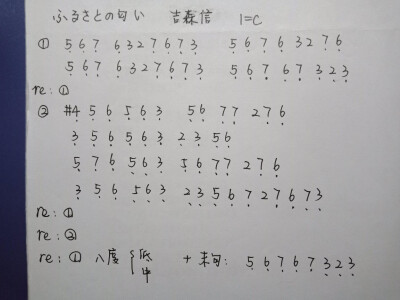 ふるさとの匂い 吉森信 1=C
① 5 6 7 6 3 2 7 6 7 3 5 6 7 6 3 2 7 6
5 6 7 6 3 2 7 6 7 3 5 6 7 6 7 3 2 3
re: ①
② #4 5 6 5 6 3 5 6 7 7 2 7 6
3 5 6 5 6 3 2 3 5 6
5 7 6 5 6 3 5 6 7 7 2 7 6
3 5 6 5 6 3 2 3 5 6 7 2 7 6 7 3
re: ①
re: ②
re: ① 八度 { 低 中 + 末句: 5 6 7 6 7 3 2 3